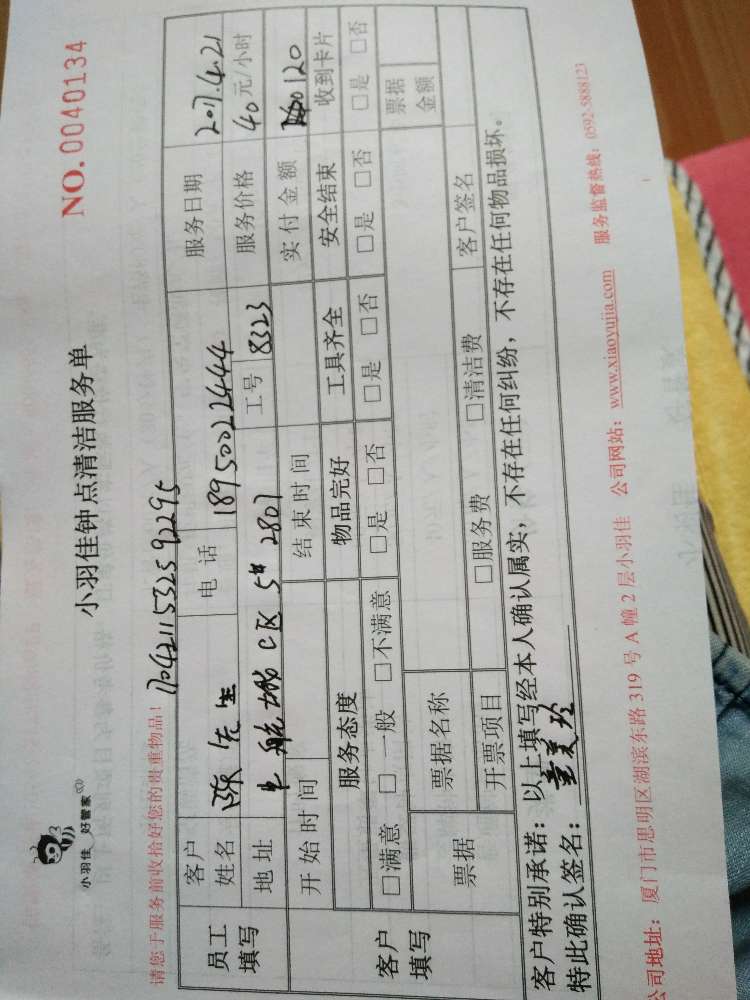 小羽佳 好管家
小羽佳钟点清洁服务单
NO. 0040134
请您于服务前收拾好您的贵重物品！
1704211532592295
员工填写
客户姓名 陈先生 电话 18950022444 服务日期 2017.4.21
地址 C区 5# 2807 工号 8323 服务价格 40元/小时
客户填写
开始时间 结束时间 实付金额 120
服务态度 物品完好 工具齐全 安全结束 收到卡片
□满意 □一般 □不满意 □是 □否 □是 □否 □是 □否 □是 □否
票据 票据名称 票据金额
开票项目 □服务费 □清洁费 客户签名
客户特别承诺：以上填写经本人确认属实，不存在任何纠纷，不存在任何物品损坏。
特此确认签名：
公司地址：厦门市思明区湖滨东路319号A幢2层小羽佳 公司网站：www.xiaoyujia.com 服务监督热线：0592-5888123